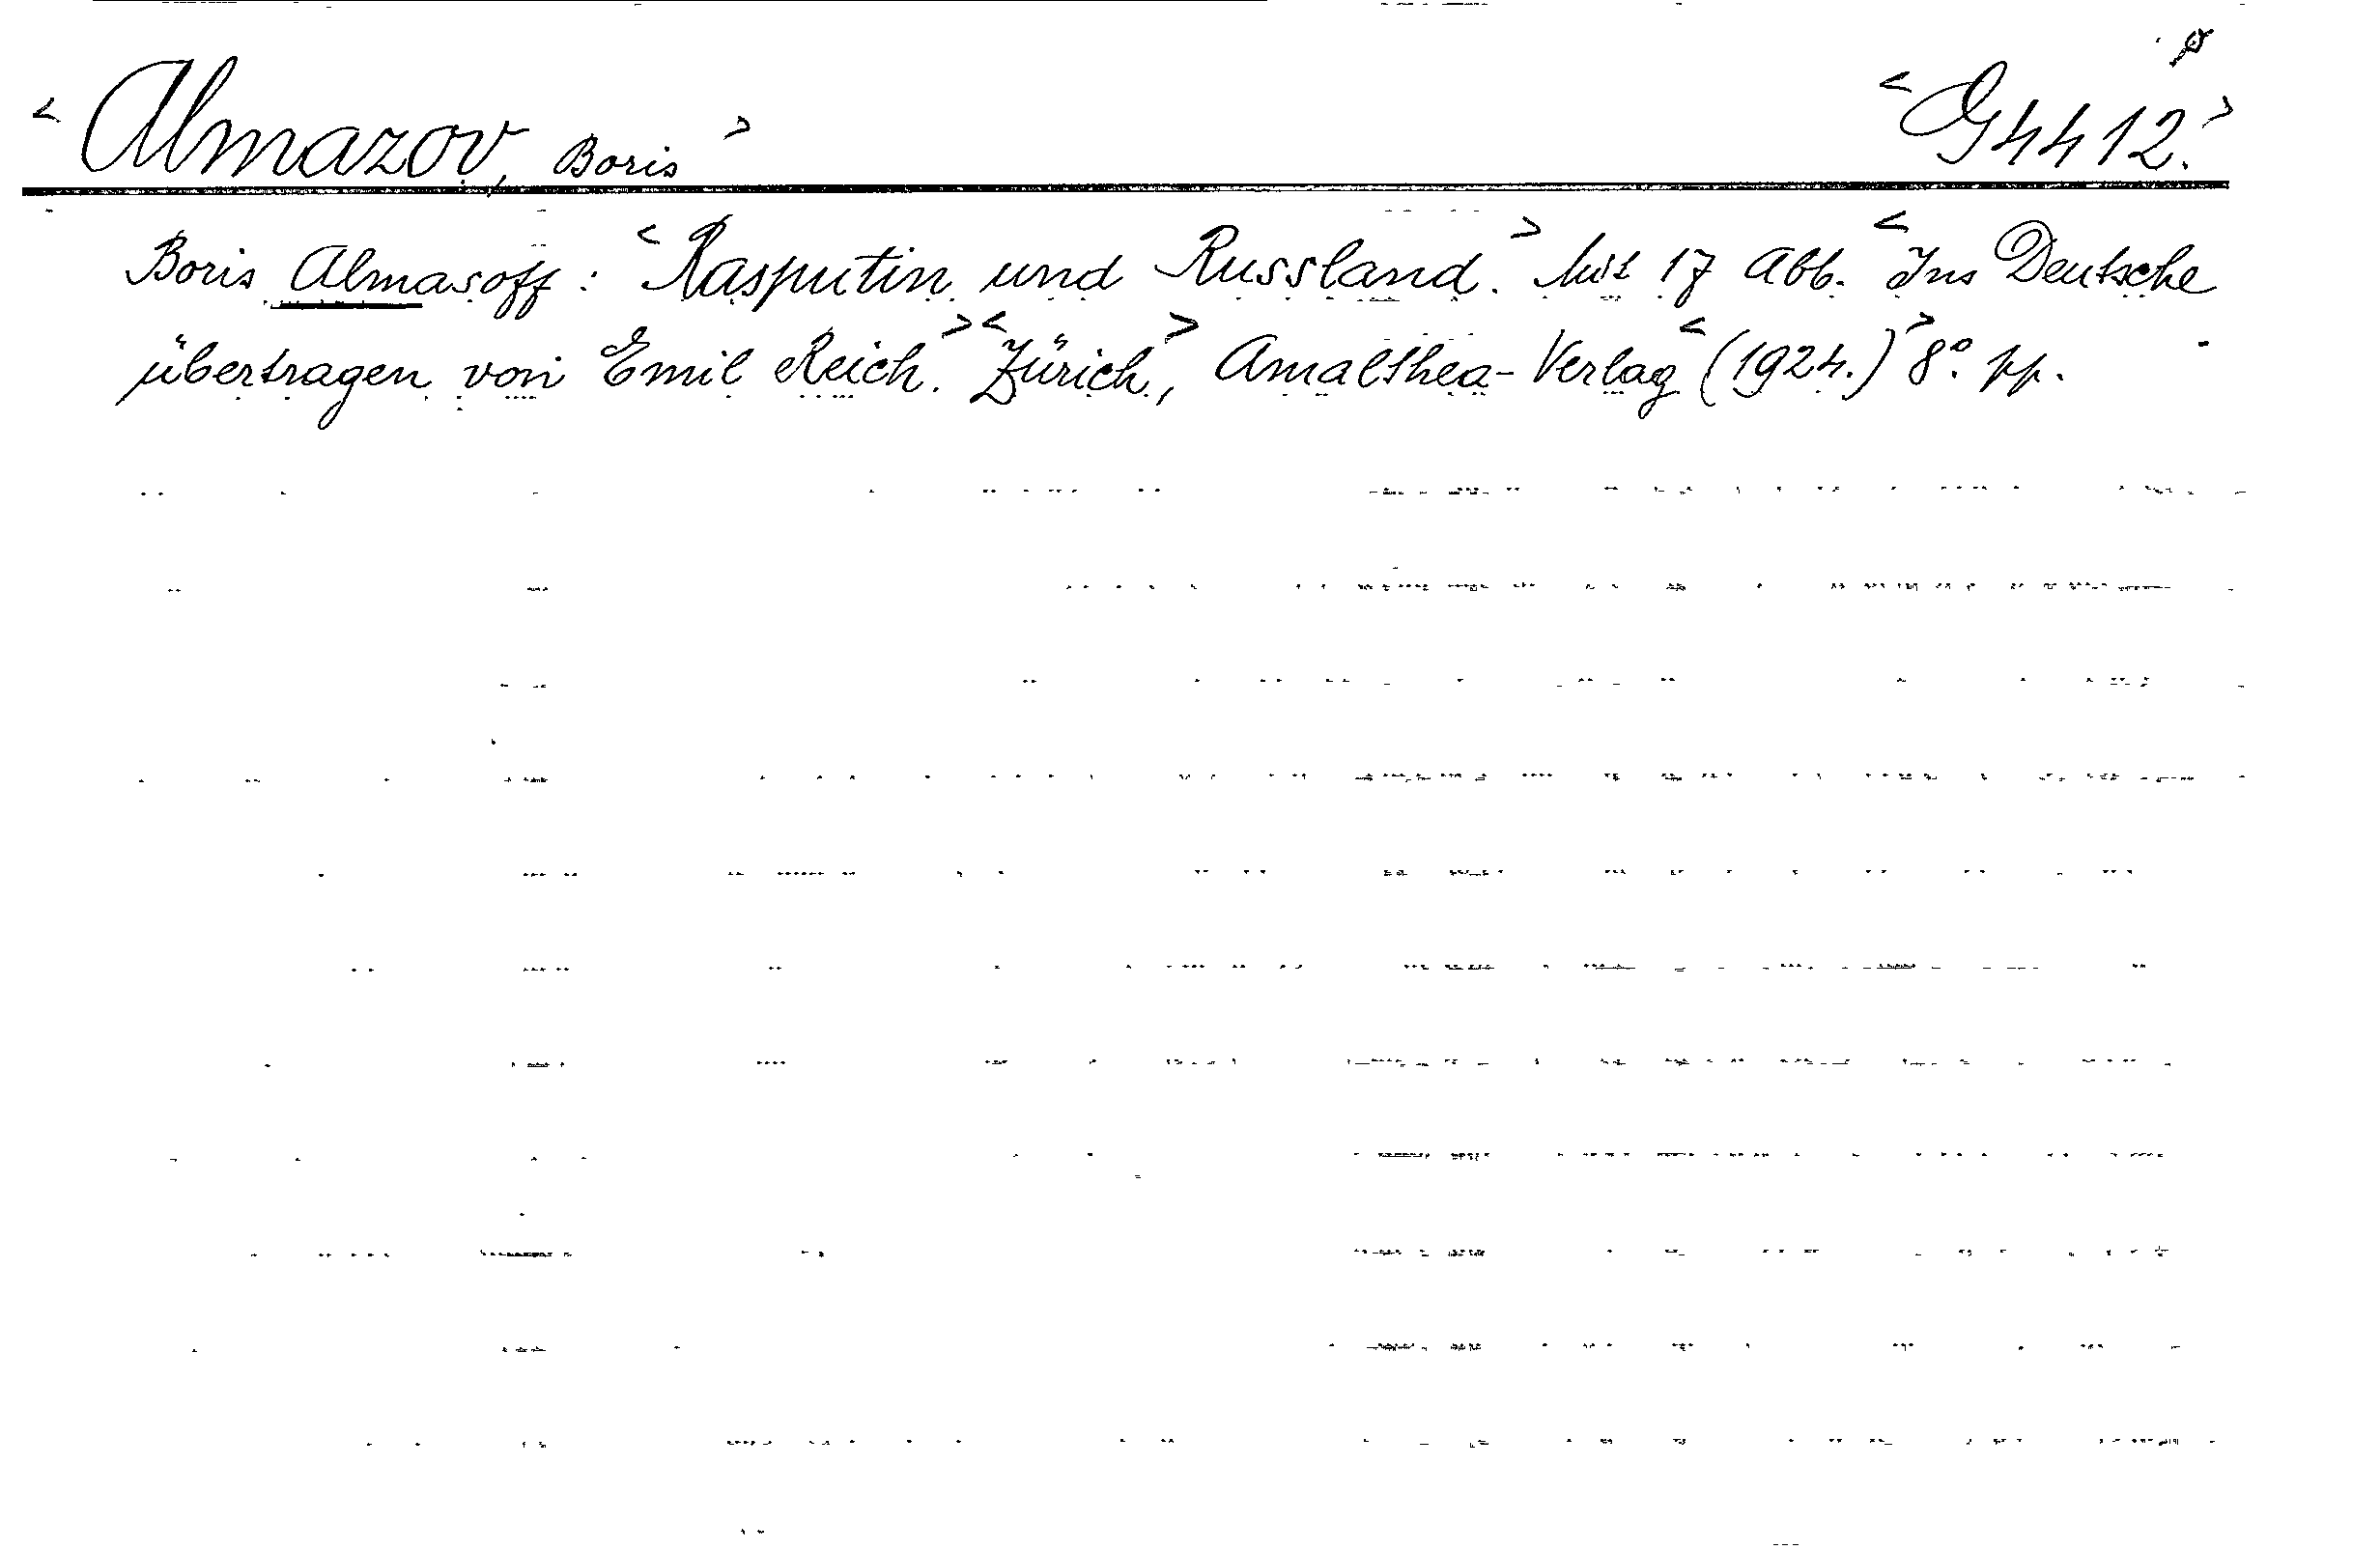 < Almazov, Boris > < G 4412. >
Boris Almasoff: < Rasputin und Russland. > Mit 17 Abb. < Ins Deutsche
übertragen von Emil Reich. > < Zürich, > Amalthea-Verlag < (1924.) > 8°. pp.